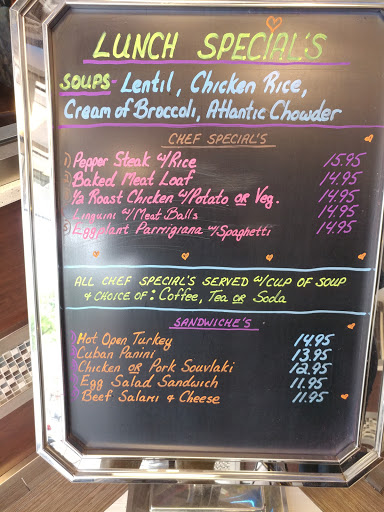 LUNCH SPECIAL'S
SOUPS- Lentil, Chicken Rice,
Cream of Broccoli, Atlantic Chowder
CHEF SPECIAL'S
1) Pepper Steak w/Rice 15.95
2) Baked Meat Loaf 14.95
½ Roast Chicken w/Potato OR Veg. 14.95
Linguini w/Meat Balls 14.95
5) Eggplant Parmigiana w/Spaghetti 14.95
ALL CHEF SPECIAL'S SERVED w/CUP OF SOUP
& CHOICE OF: Coffee, Tea OR Soda
SANDWICHE'S
Hot Open Turkey 14.95
Cuban Panini 13.95
Chicken OR Pork Souvlaki 12.95
Egg Salad Sandwich 11.95
Beef Salami & Cheese 11.95